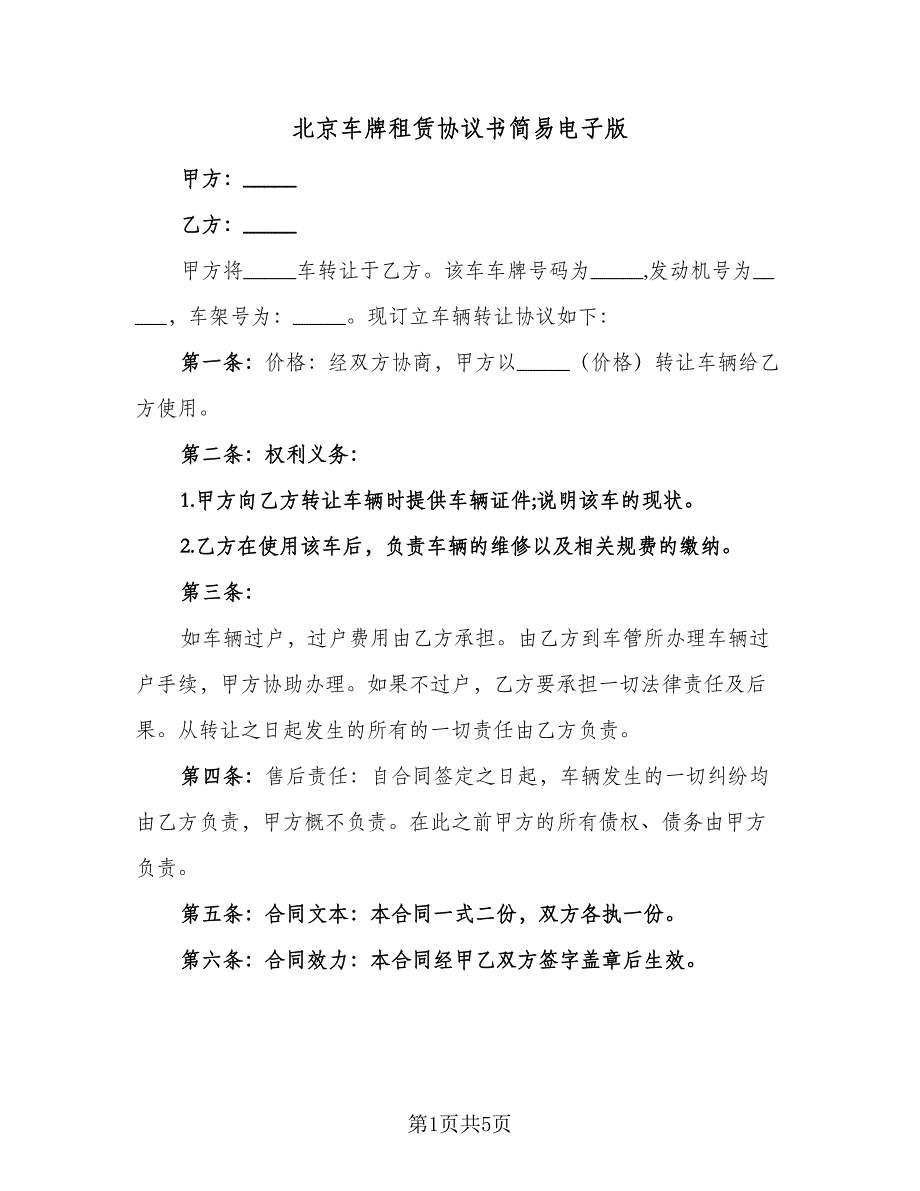 北京车牌租赁协议书简易电子版
甲方：_____
乙方：_____
甲方将_____车转让于乙方。该车车牌号码为_____,发动机号为__
___，车架号为：_____。现订立车辆转让协议如下：
第一条：价格：经双方协商，甲方以_____（价格）转让车辆给乙
方使用。
第二条：权利义务：
1.甲方向乙方转让车辆时提供车辆证件;说明该车的现状。
2.乙方在使用该车后，负责车辆的维修以及相关规费的缴纳。
第三条：
如车辆过户，过户费用由乙方承担。由乙方到车管所办理车辆过
户手续，甲方协助办理。如果不过户，乙方要承担一切法律责任及后
果。从转让之日起发生的所有的一切责任由乙方负责。
第四条：售后责任：自合同签定之日起，车辆发生的一切纠纷均
由乙方负责，甲方概不负责。在此之前甲方的所有债权、债务由甲方
负责。
第五条：合同文本：本合同一式二份，双方各执一份。
第六条：合同效力：本合同经甲乙双方签字盖章后生效。
第1页共5页